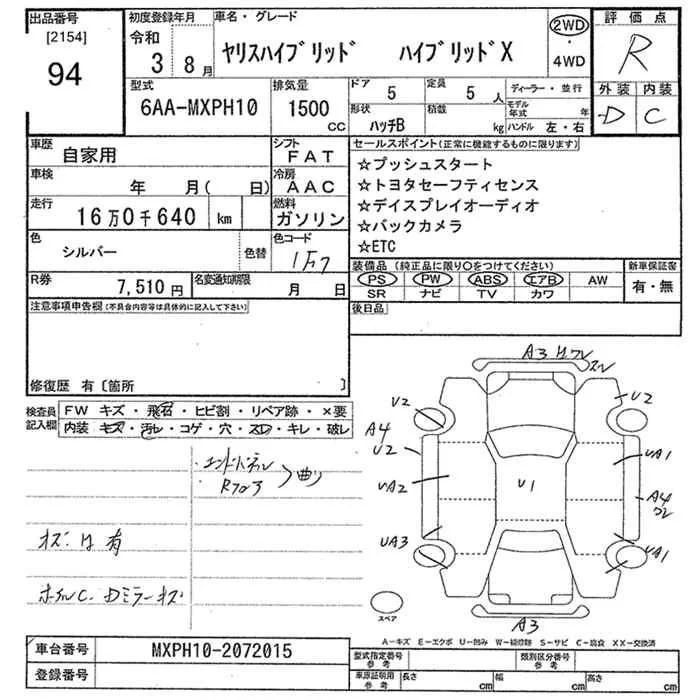 出品番号
[2154]
94
初度登録年月
令和
3 8月
車名・グレード
ヤリスハイブリッド ハイブリッドX
2WD
・
4WD
評価点
R
外装 内装
D C
型式
6AA-MXPH10
排気量
1500
CC
ドア
5
定員
5人
形状
ハッチB
積載
kg
ディーラー・並行
モデル年式 年
ハンドル 左・右
車歴
自家用
シフト
FAT
車検
年 月( 日)
冷房
AAC
走行
16万0千640 km
燃料
ガソリン
色
シルバー
色替
色コード
1F7
R券
7,510円
名変通知期限
月 日
セールスポイント(正常に機能するものに限ります)
☆プッシュスタート
☆トヨタセーフティセンス
☆デイスプレイオーディオ
☆バックカメラ
☆ETC
装備品(純正品に限り〇をつけてください)
PS PW ABS エアB AW
SR ナビ TV カワ
新車保証書
有・無
注意事項申告欄(不具合内容等は具体的に記入して下さい)
後日品
修復歴 有〔箇所 〕
検査員記入欄
FW キズ・飛石・ヒビ割・リペア跡・×要
内装 キズ・汚レ・コゲ・穴・スレ・キレ・破レ
曲り
キズ・凹有
ホイルC. Dミラーキズ
A3
U2
U2
A4
U2
UA2
UA3
U1
UA1
A4
ワレ
UA1
A3
スペア
A-キズ E-エクボ U-凹み W-補修跡 S-サビ C-腐食 XX-交換済
車台番号
MXPH10-2072015
登録番号
型式指定番号
参考
類別区分番号
参考
車庫証明用
参考
長さ cm
幅 cm
高さ cm